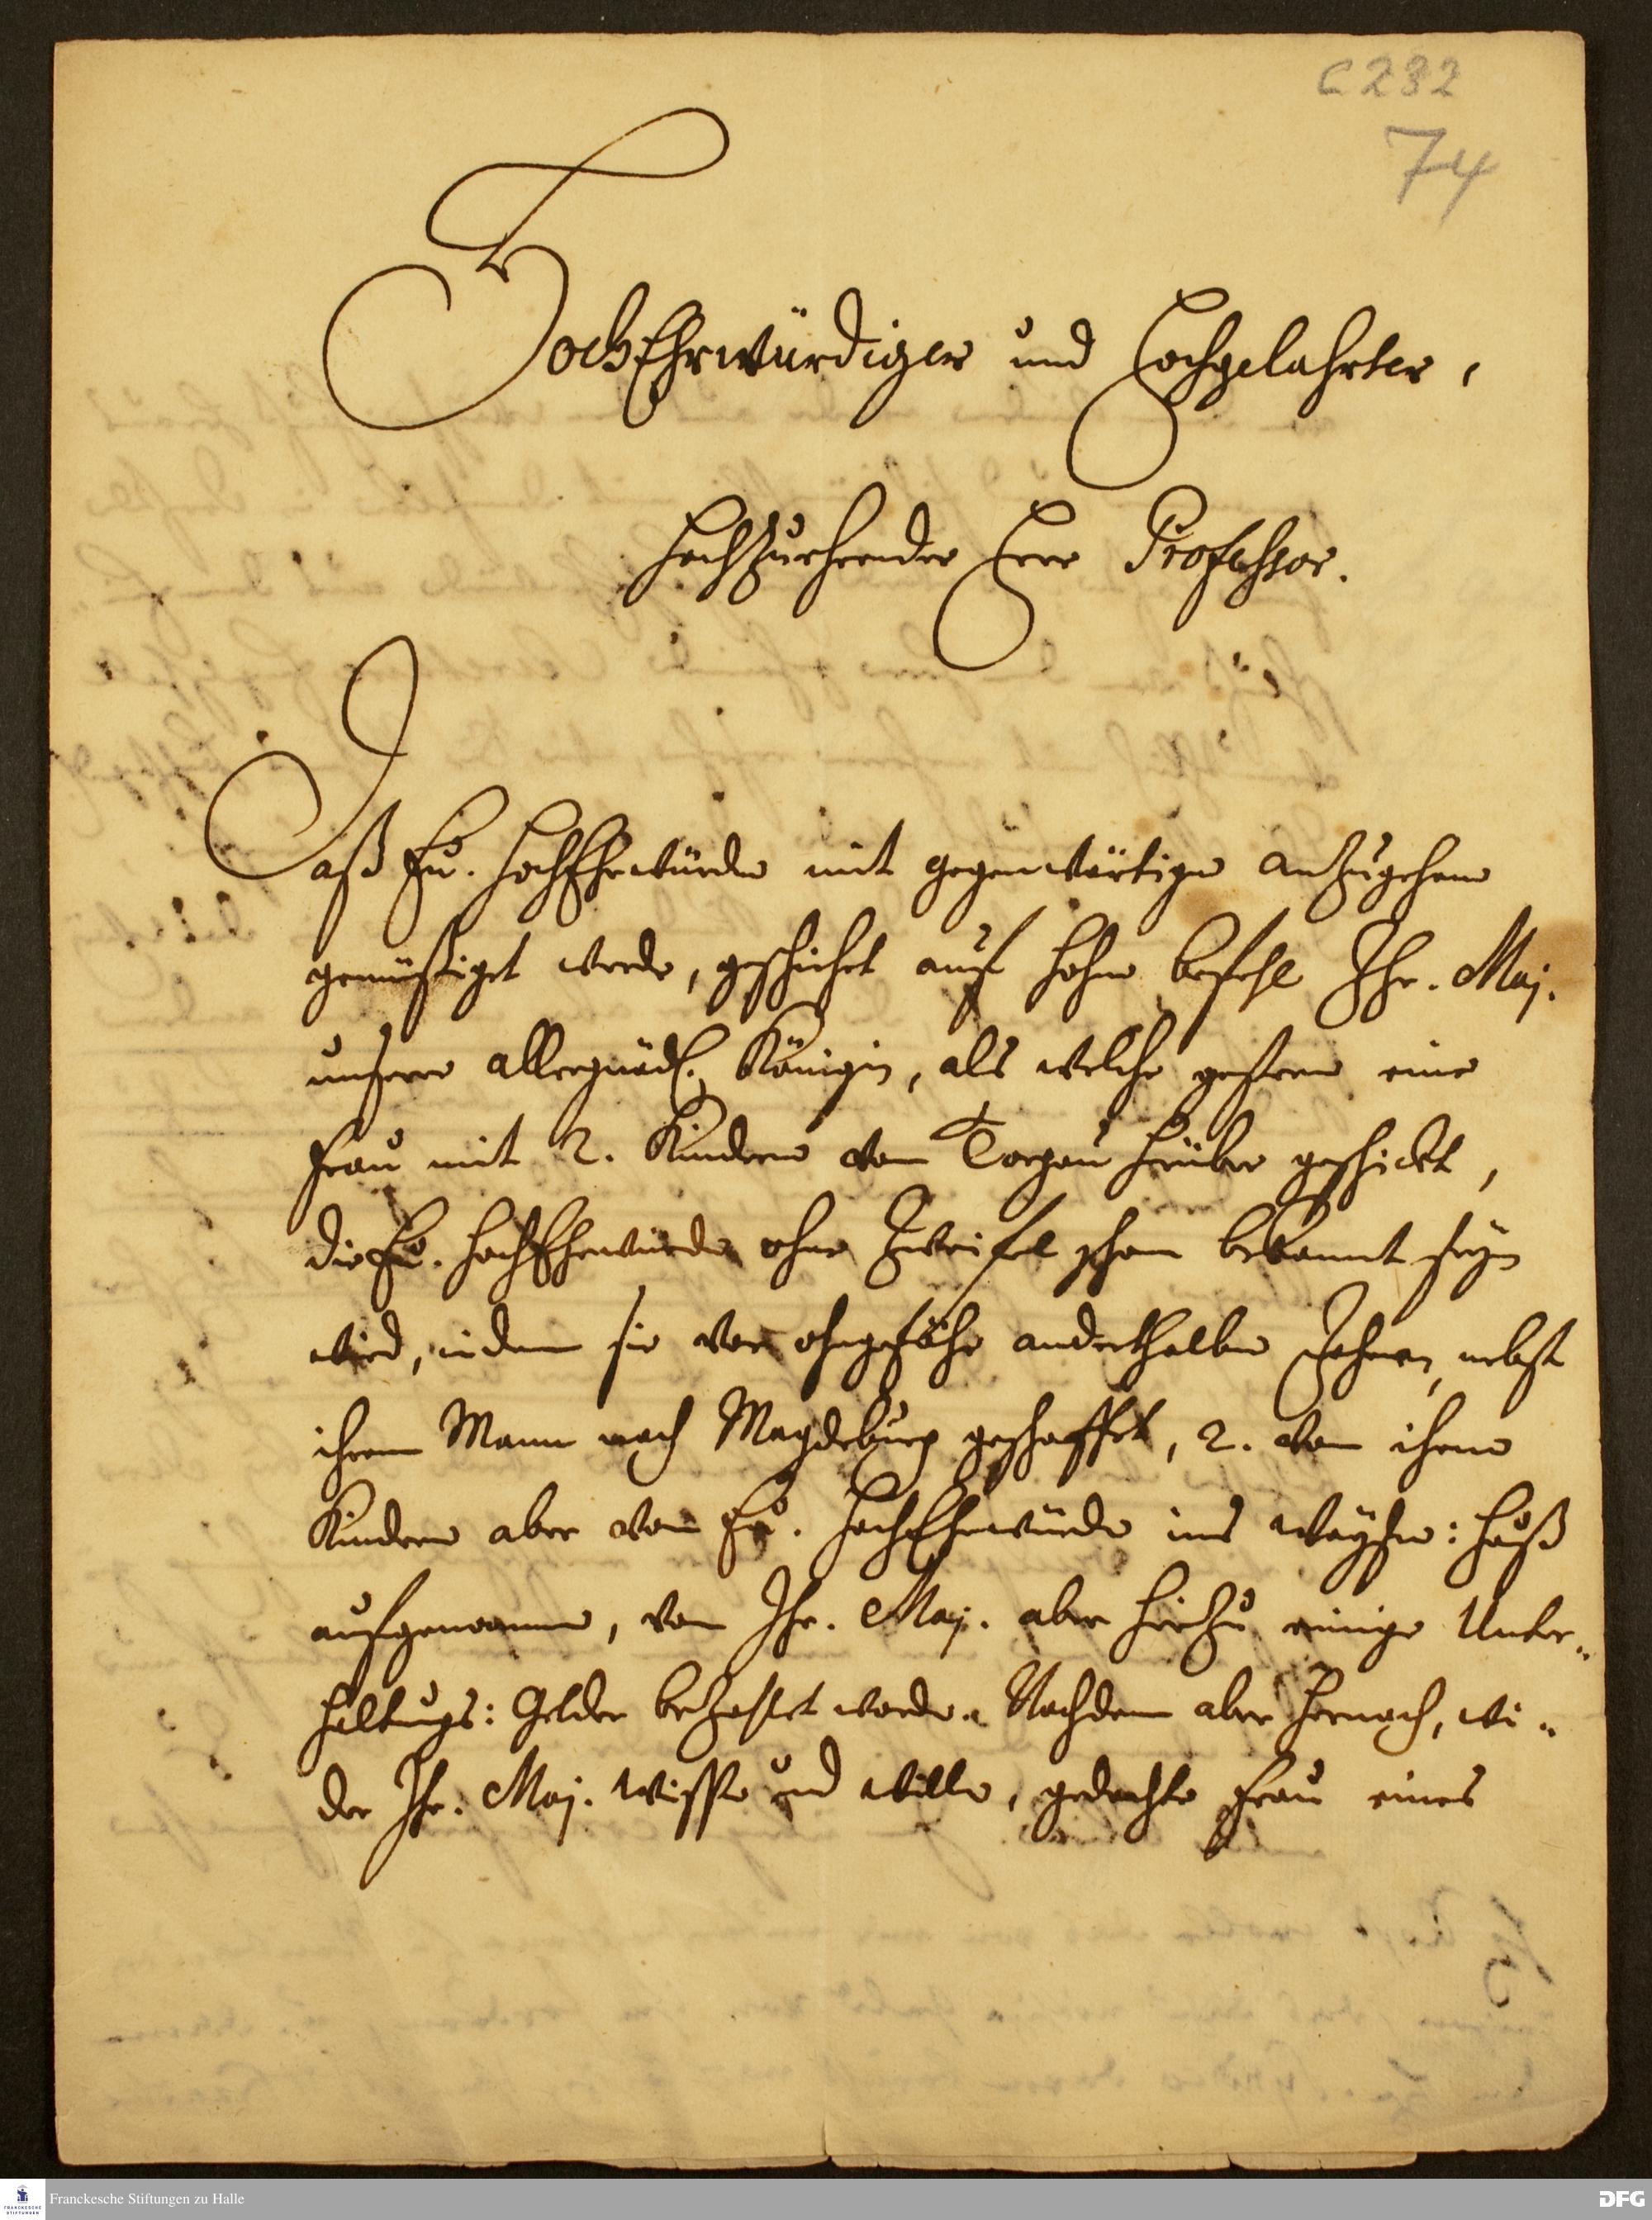 C 232
74
HochEhrwürdiger und Hochgelahrter,
Hochzuehrender Herr Professor.
Daß Ew. HochEhrwürden mit gegenwärtigen anzugehen
gemüßiget werde, geschiehet auf hohen befehl Ihr. Maj.
unserer allergnäd. Königin, als welche gestern eine
Frau mit 2. Kindern von Torgau herüber geschickt,
die Ew. HochEhrwürden ohne Zweifel schon bekannt seyn
wird, indem sie vor ohngefähr anderthalben Jahren nebst
ihrem Mann nach Magdeburg geschaffet, 2. von ihren
Kindern aber von Ew. HochEhrwürden ins Waysen: Hauß
aufgenommen, von Ihr. Maj. aber hierzu einige Unter-
haltungs: Gelder bezahlet worden. Nachdem aber hernach, wi-
der Ihr. Maj. Wissen und Willen, gedachte Frau eines
Franckesche Stiftungen zu Halle
DFG